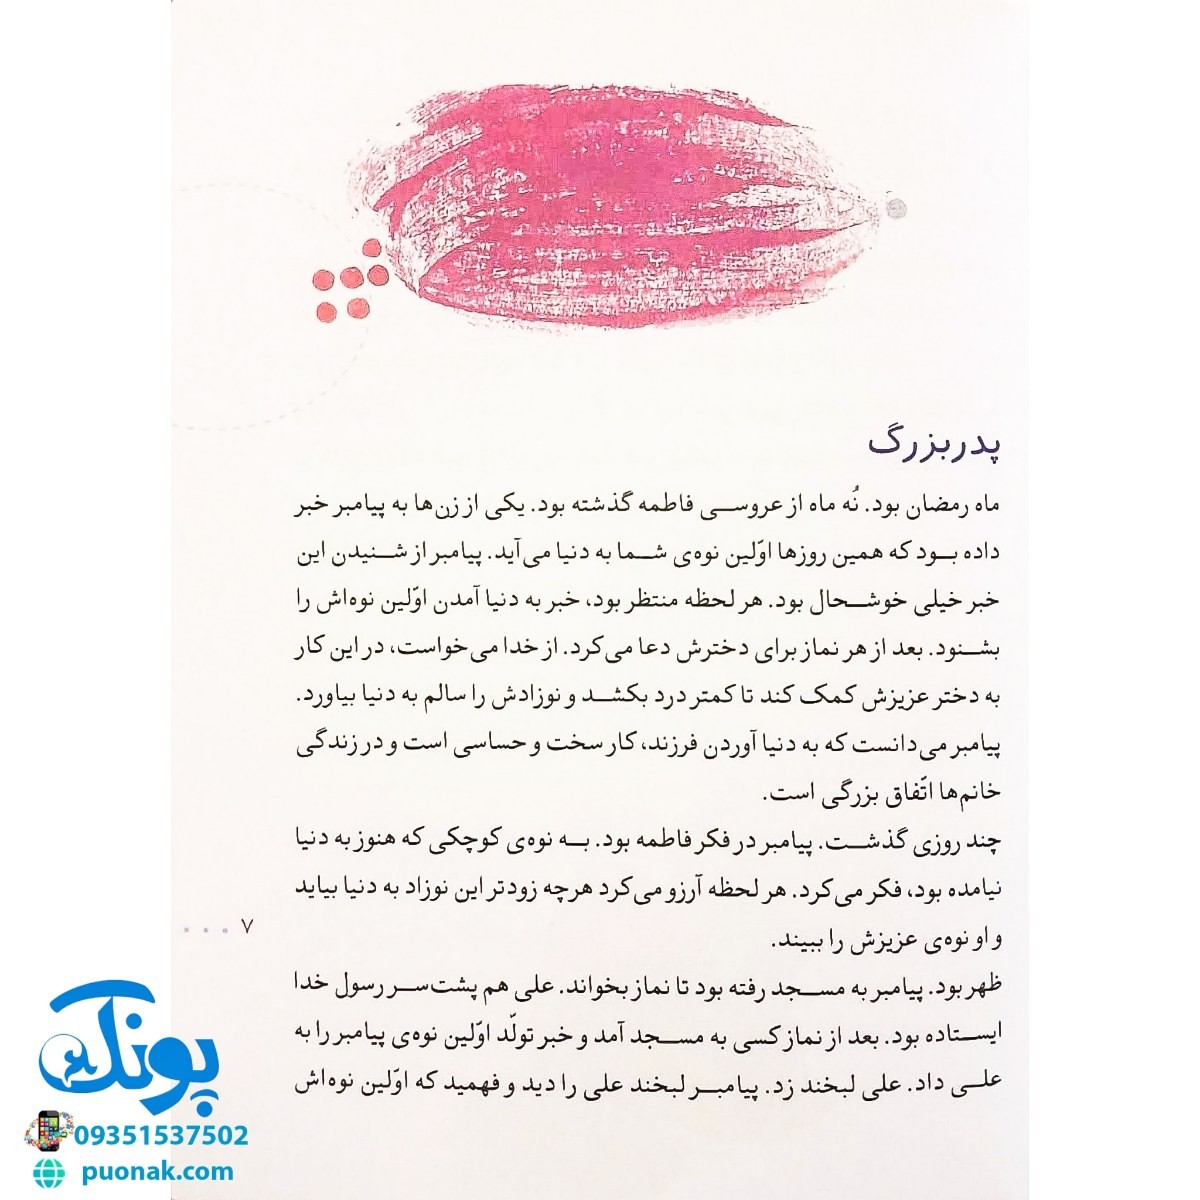 پدربزرگ
ماه رمضان بود. نُه ماه از عروسی فاطمه گذشته بود. یکی از زن‌ها به پیامبر خبر
داده بود که همین روزها اوّلین نوه‌ی شما به دنیا می‌آید. پیامبر از شنیدن این
خبر خیلی خوشحال بود. هر لحظه منتظر بود، خبر به دنیا آمدن اوّلین نوه‌اش را
بشنود. بعد از هر نماز برای دخترش دعا می‌کرد. از خدا می‌خواست، در این کار
به دختر عزیزش کمک کند تا کمتر درد بکشد و نوزادش را سالم به دنیا بیاورد.
پیامبر می‌دانست که به دنیا آوردن فرزند، کار سخت و حساسی است و در زندگی
خانم‌ها اتّفاق بزرگی است.
چند روزی گذشت. پیامبر در فکر فاطمه بود. به نوه‌ی کوچکی که هنوز به دنیا
نیامده بود، فکر می‌کرد. هر لحظه آرزو می‌کرد هرچه زودتر این نوزاد به دنیا بیاید
و او نوه‌ی عزیزش را ببیند.
۷
ظهر بود. پیامبر به مسجد رفته بود تا نماز بخواند. علی هم پشت‌سر رسول خدا
ایستاده بود. بعد از نماز کسی به مسجد آمد و خبر تولّد اوّلین نوه‌ی پیامبر را به
علی داد. علی لبخند زد. پیامبر لبخند علی را دید و فهمید که اوّلین نوه‌اش
پونک
09351537502
puonak.com